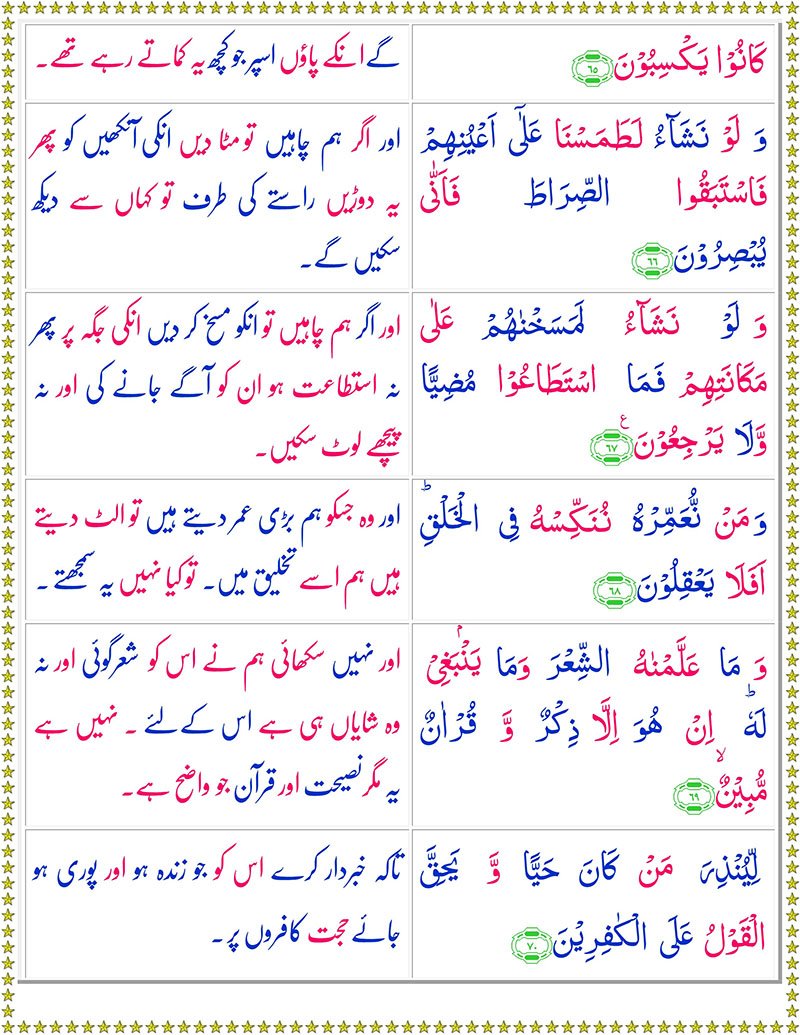 كَانُوۡا يَكۡسِبُوۡنَ ﴿۶۵﴾
گے انکے پاؤں اسپر جو کچھ یہ کماتے رہے تھے۔
وَ لَوۡ نَشَآءُ لَطَمَسۡنَا عَلٰٓى اَعۡيُنِهِمۡ
فَاسۡتَبَقُوا الصِّرَاطَ فَاَنّٰى
يُبۡصِرُوۡنَ ﴿۶۶﴾
اور اگر ہم چاہیں تو مٹا دیں انکی آنکھیں کو پھر
یہ دوڑیں راستے کی طرف تو کہاں سے دیکھ
سکیں گے۔
وَ لَوۡ نَشَآءُ لَمَسَخۡنٰهُمۡ عَلٰى
مَكَانَتِهِمۡ فَمَا اسۡتَطَاعُوۡا مُضِيًّا
وَّلَا يَرۡجِعُوۡنَ ﴿۶۷﴾ ع
اور اگر ہم چاہیں تو انکو مسخ کر دیں انکی جگہ پر پھر
نہ استطاعت ہو ان کو آگے جانے کی اور نہ
پیچھے لوٹ سکیں۔
وَمَنۡ نُّعَمِّرۡهُ نُـنَكِّسۡهُ فِى الۡخَـلۡقِؕ
اَفَلَا يَعۡقِلُوۡنَ ﴿۶۸﴾
اور وہ جسکو ہم بڑی عمر دیتے ہیں تو الٹ دیتے
ہیں ہم اسے تخلیق میں۔ تو کیا نہیں یہ سمجھتے۔
وَ مَا عَلَّمۡنٰهُ الشِّعۡرَ وَمَا يَنۡۢبَغِىۡ
لَهٗؕ اِنۡ هُوَ اِلَّا ذِكۡرٌ وَّ قُرۡاٰنٌ
مُّبِيۡنٌۙ ﴿۶۹﴾
اور نہیں سکھائی ہم نے اس کو شعرگوئی اور نہ
وہ شایاں ہی ہے اس کے لئے ۔ نہیں ہے
یہ مگر نصیحت اور قرآن جو واضح ہے۔
لِّيُنۡذِرَ مَنۡ كَانَ حَيًّا وَّ يَحِقَّ
الۡقَوۡلُ عَلَى الۡكٰفِرِيۡنَ ﴿۷۰﴾
تاکہ خبردار کرے اس کو جو زندہ ہو اور پوری ہو
جائے حجت کافروں پر۔